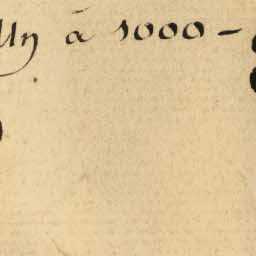 Un à 1000 -